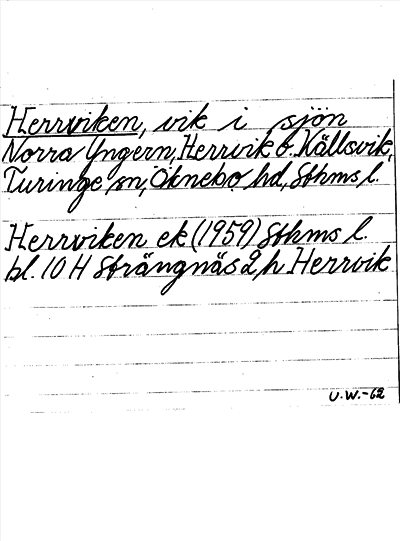 Herrviken, vik i sjön
Norra Yngern, Herrvik o. Källsvik,
Turinge sn, Öknebo hd, Sthms l.
Herrviken ek (1959) Sthms l.
bl. 10 H Strängnäs 2, h Herrvik
U.W.-62